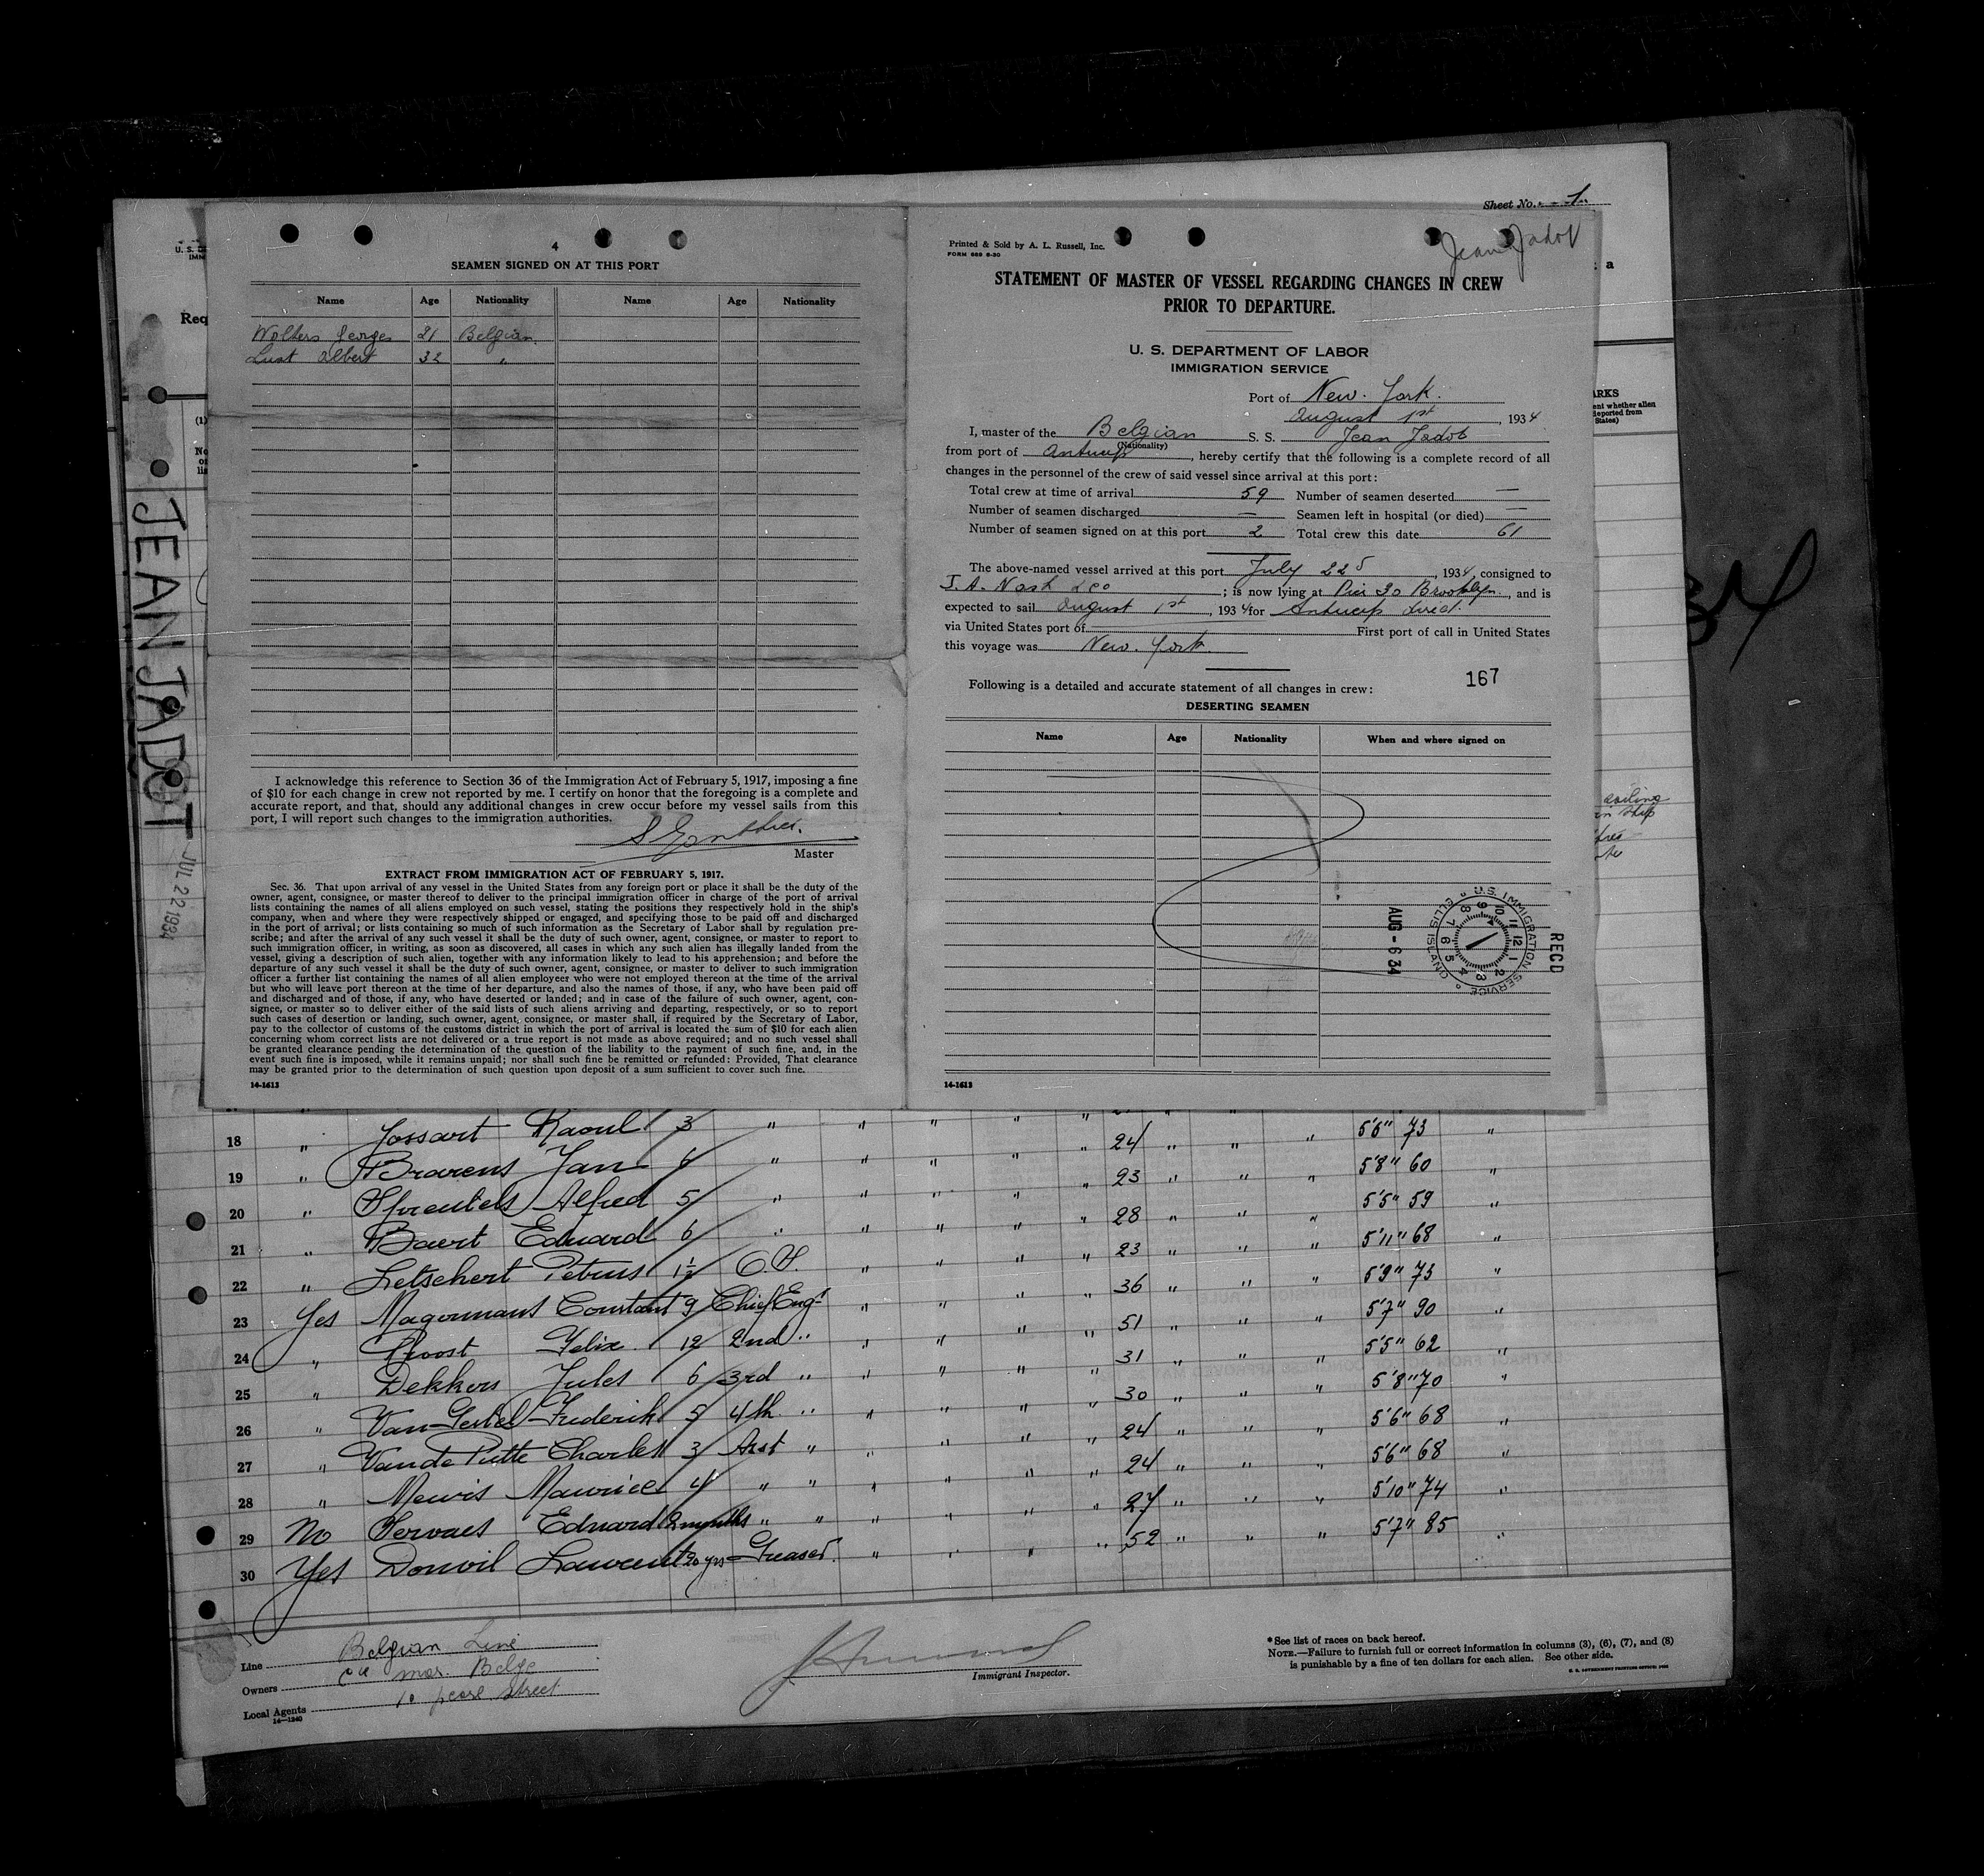 Sheet No. 1
4
SEAMEN SIGNED ON AT THIS PORT
Name Age Nationality Name Age Nationality
Wolters Georges 21 Belgian.
Lust Albert 32 "
I acknowledge this reference to Section 36 of the Immigration Act of February 5, 1917, imposing a fine
of $10 for each change in crew not reported by me. I certify on honor that the foregoing is a complete and
accurate report, and that, should any additional changes in crew occur before my vessel sails from this
port, I will report such changes to the immigration authorities.
Master
EXTRACT FROM IMMIGRATION ACT OF FEBRUARY 5, 1917.
Sec. 36. That upon arrival of any vessel in the United States from any foreign port or place it shall be the duty of the
owner, agent, consignee, or master thereof to deliver to the principal immigration officer in charge of the port of arrival
lists containing the names of all aliens employed on such vessel, stating the positions they respectively hold in the ship's
company, when and where they were respectively shipped or engaged, and specifying those to be paid off and discharged
in the port of arrival; or lists containing so much of such information as the Secretary of Labor shall by regulation pre-
scribe; and after the arrival of any such vessel it shall be the duty of such owner, agent, consignee, or master to report to
such immigration officer, in writing, as soon as discovered, all cases in which any such alien has illegally landed from the
vessel, giving a description of such alien, together with any information likely to lead to his apprehension; and before the
departure of any such vessel it shall be the duty of such owner, agent, consignee, or master to deliver to such immigration
officer a further list containing the names of all alien employees who were not employed thereon at the time of the arrival
but who will leave port thereon at the time of her departure, and also the names of those, if any, who have been paid off
and discharged and of those, if any, who have deserted or landed; and in case of the failure of such owner, agent, con-
signee, or master so to deliver either of the said lists of such aliens arriving and departing, respectively, or so to report
such cases of desertion or landing, such owner, agent, consignee, or master shall, if required by the Secretary of Labor,
pay to the collector of customs of the customs district in which the port of arrival is located the sum of $10 for each alien
concerning whom correct lists are not delivered or a true report is not made as above required; and no such vessel shall
be granted clearance pending the determination of the question of the liability to the payment of such fine, and, in the
event such fine is imposed, while it remains unpaid; nor shall such fine be remitted or refunded: Provided, That clearance
may be granted prior to the determination of such question upon deposit of a sum sufficient to cover such fine.
14-1613
Printed & Sold by A. L. Russell, Inc.
FORM 689 6-30
Jean Jadot
STATEMENT OF MASTER OF VESSEL REGARDING CHANGES IN CREW
PRIOR TO DEPARTURE.
U. S. DEPARTMENT OF LABOR
IMMIGRATION SERVICE
Port of New. York.
August 1st, 1934
I, master of the Belgian S. S. Jean Jadot
(Nationality)
from port of Antwerp, hereby certify that the following is a complete record of all
changes in the personnel of the crew of said vessel since arrival at this port:
Total crew at time of arrival 59 Number of seamen deserted —
Number of seamen discharged — Seamen left in hospital (or died) —
Number of seamen signed on at this port 2 Total crew this date 61
The above-named vessel arrived at this port July 22, 1934, consigned to
J. A. Nash & Co; is now lying at Pier 30 Brooklyn, and is
expected to sail August 1st, 1934 for Antwerp direct.
via United States port of First port of call in United States
this voyage was New. York
Following is a detailed and accurate statement of all changes in crew:
167
DESERTING SEAMEN
Name Age Nationality When and where signed on
U.S. IMMIGRATION SERVICE ELLIS ISLAND
RECD
AUG - 6 34
14-1613
JEAN JADOT
JUL 22 1934
18 " Jossart Raoul 3 " " " " " 24 " " " 5'6" 73 "
19 " Brarens Jan 6 " " " " " 23 " " " 5'8" 60 "
20 " Sprentels Alfred 5 " " " " " 28 " " " 5'5" 59 "
21 " Baert Eduard 6 " " " " " 23 " " " 5'11" 68 "
22 " Letschert Petrus 1½ O.S. " " " " 36 " " " 5'9" 73 "
23 Yes Magonmans Constant 9 Chief Eng. " " " " 51 " " " 5'7" 90 "
24 " Proost Felix 12 2nd " " " " " 31 " " " 5'5" 62 "
25 " Dekkers Jules 6 3rd " " " " " 30 " " " 5'8" 70 "
26 " Van Gestel Frederik 5 4th " " " " " 24 " " " 5'6" 68 "
27 " Van de Putte Charles 3 Asst " " " " " 24 " " " 5'6" 68 "
28 " Mewis Maurice 4 " " " " " " 27 " " " 5'10" 74 "
29 No Servaes Eduard 2 months " " " " " " 52 " " " 5'7" 85 "
30 Yes Donvil Laurent 20 yrs Greaser.
Line Belgian Line
Owners Cie mar. Belge
Local Agents 10 pearl Street
14-1240
Immigrant Inspector.
*See list of races on back hereof.
NOTE.—Failure to furnish full or correct information in columns (3), (6), (7), and (8)
is punishable by a fine of ten dollars for each alien. See other side.